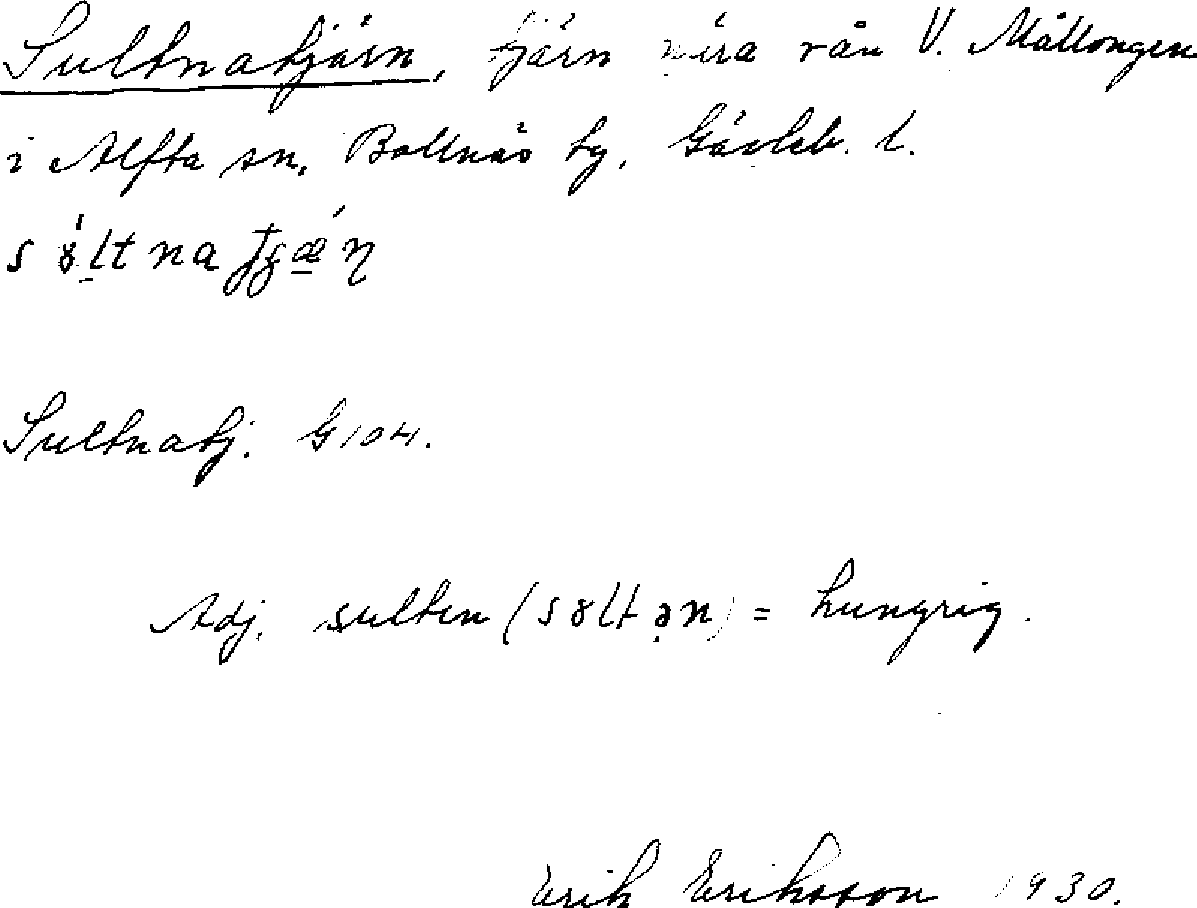 Sultnatjärn, tjärn nära rån V. Mållongen
i Alfta sn, Bollnäs tg, Gävleb. l.
Sultnatj. G104.
Adj. sulten (sɤltən) = hungrig.
Erik Eriksson 1930.